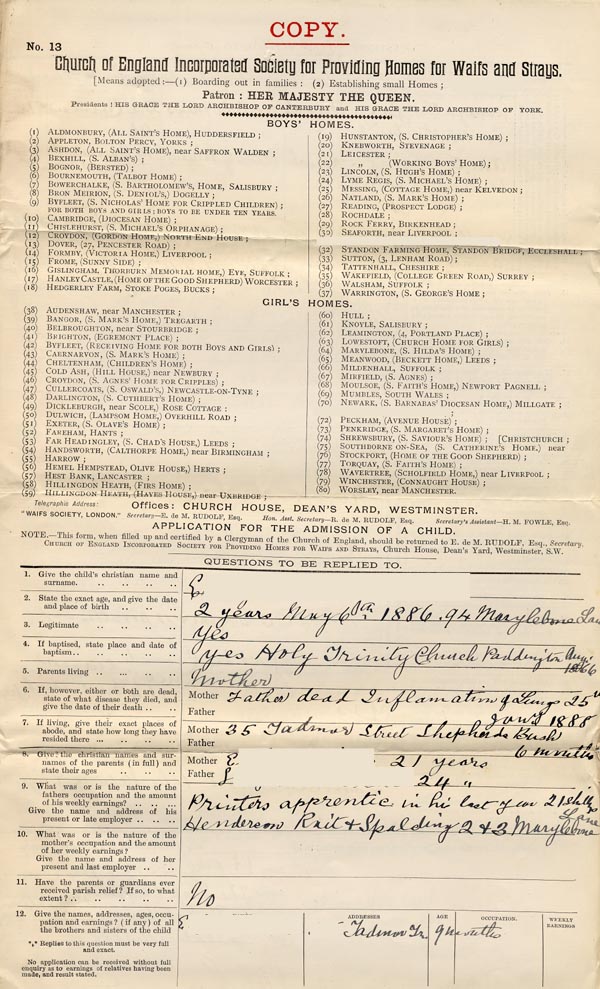 COPY.
No. 13
Church of England Incorporated Society for Providing Homes for Waifs and Strays.
[Means adopted:—(1) Boarding out in families : (2) Establishing small Homes ;
Patron : HER MAJESTY THE QUEEN.
Presidents : HIS GRACE THE LORD ARCHBISHOP OF CANTERBURY and HIS GRACE THE LORD ARCHBISHOP OF YORK.
BOYS' HOMES.
(1) ALDMONBURY, (ALL SAINT'S HOME), HUDDERSFIELD ;
(2) APPLETON, BOLTON PERCY, YORKS ;
(3) ASHDON, (ALL SAINT'S HOME), near SAFFRON WALDEN ;
(4) BEXHILL, (S. ALBAN'S) ;
(5) BOGNOR, (BERSTED) ;
(6) BOURNEMOUTH, (TALBOT HOME) ;
(7) BOWERCHALKE, (S. BARTHOLOMEW'S, HOME, SALISBURY ;
(8) BRON MEIRION, (S. DENIOL'S), DOGELLY ;
(9) BYFLEET, (S. NICHOLAS' HOME FOR CRIPPLED CHILDREN) ;
FOR BOTH BOYS AND GIRLS ; BOYS TO BE UNDER TEN YEARS.
(10) CAMBRIDGE, (DIOCESAN HOME) ;
(11) CHISLEHURST, (S. MICHAEL'S ORPHANAGE) ;
(12) CROYDON, (GORDON HOME,) NORTH END HOUSE ;
(13) DOVER, (27, PENCESTER ROAD) ;
(14) FORMBY, (VICTORIA HOME,) LIVERPOOL ;
(15) FROME, (SUNNY SIDE) ;
(16) GISLINGHAM, THORBURN MEMORIAL HOME,) EYE, SUFFOLK ;
(17) HANLEY CASTLE, (HOME OF THE GOOD SHEPHERD) WORCESTER ;
(18) HEDGERLEY FARM, STOKE POGES, BUCKS ;
(19) HUNSTANTON, (S. CHRISTOPHER'S HOME) ;
(20) KNEBWORTH, STEVENAGE ;
(21) LEICESTER ;
(22) " (WORKING BOYS' HOME) ;
(23) LINCOLN, (S. HUGH'S HOME) ;
(24) LYME REGIS, (S. MICHAEL'S HOME) ;
(25) MESSING, (COTTAGE HOME,) near KELVEDON ;
(26) NATLAND, (S. MARK'S HOME) ;
(27) READING, (PROSPECT LODGE) ;
(28) ROCHDALE ;
(29) ROCK FERRY, BIRKENHEAD ;
(30) SEAFORTH, near LIVERPOOL ;
(32) STANDON FARMING HOME, STANDON BRIDGE, ECCLESHALL ;
(33) SUTTON, (3, LENHAM ROAD) ;
(34) TATTENHALL, CHESHIRE ;
(35) WAKEFIELD, (COLLEGE GREEN ROAD,) SURREY ;
(36) WALSHAM, SUFFOLK ;
(37) WARRINGTON, (S. GEORGE'S HOME ;
GIRL'S HOMES.
(38) AUDENSHAW, near MANCHESTER ;
(39) BANGOR, (S. MARK'S HOME,) TREGARTH ;
(40) BELBROUGHTON, near STOURBRIDGE ;
(41) BRIGHTON, (EGREMONT PLACE) ;
(42) BYFLEET, (RECEIVING HOME FOR BOTH BOYS AND GIRLS) ;
(43) CAERNARVON, (S. MARK'S HOME) ;
(44) CHELTENHAM, (CHILDREN'S HOME) ;
(45) COLD ASH, (HILL HOUSE,) near NEWBURY ;
(46) CROYDON, (S. AGNES' HOME FOR CRIPPLES) ;
(47) CULLERCOATS, (S. OSWALD'S,) NEWCASTLE-ON-TYNE ;
(48) DARLINGTON, (S. CUTHBERT'S HOME) ;
(49) DICKLEBURGH, near SCOLE,) ROSE COTTAGE :
(50) DULWICH, (LAMPSOM HOME,) OVERHILL ROAD ;
(51) EXETER, (S. OLAVE'S HOME) ;
(52) FAREHAM, HANTS ;
(53) FAR HEADINGLEY, (S. CHAD'S HOUSE,) LEEDS ;
(54) HANDSWORTH, (CALTHORPE HOME,) near BIRMINGHAM ;
(55) HARROW ;
(56) HEMEL HEMPSTEAD, OLIVE HOUSE,) HERTS ;
(57) HEST BANK, LANCASTER ;
(58) HILLINGDON HEATH, (FIRS HOME) ;
(59) HILLINGDON HEATH, (HAYES HOUSE,) near UXBRIDGE ;
(60) HULL ;
(61) KNOYLE, SALISBURY ;
(62) LEAMINGTON, (4, PORTLAND PLACE) ;
(63) LOWESTOFT, (CHURCH HOME FOR GIRLS) ;
(64) MARYLEBONE, (S. HILDA'S HOME) ;
(65) MEANWOOD, (BECKETT HOME,) LEEDS ;
(66) MILDENHALL, SUFFOLK ;
(67) MIRFIELD, (S. AGNES) ;
(68) MOULSOE, (S. FAITH'S HOME,) NEWPORT PAGNELL ;
(69) MUMBLES, SOUTH WALES ;
(70) NEWARK, (S. BARNABAS' DIOCESAN HOME,) MILLGATE ;
(72) PECKHAM, (AVENUE HOUSE) ;
(73) PENKRIDGE, (S. MARGARET'S HOME) ;
(74) SHREWSBURY, (S. SAVIOUR'S HOME) ; [CHRISTCHURCH ;
(75) SOUTHBORNE-ON-SEA, (S. CATHERINE'S HOME,) near
(76) STOCKPORT, (HOME OF THE GOOD SHEPHERD) ;
(77) TORQUAY, (S. FAITH'S HOME) ;
(78) WAVERTREE, (SCHOLFIELD HOME,) near LIVERPOOL ;
(79) WINCHESTER, (CONNAUGHT HOUSE) ;
(80) WORSLEY, near MANCHESTER.
Telegraphic Address: Offices: CHURCH HOUSE, DEAN'S YARD, WESTMINSTER.
"WAIFS SOCIETY, LONDON." Secretary—E. de M. RUDOLF, Esq. Hon. Asst. Secretary—R. de M. RUDOLF, Esq. Secretary's Assistant—H. M. FOWLE, Esq.
APPLICATION FOR THE ADMISSION OF A CHILD.
NOTE.—This form, when filled up and certified by a Clergyman of the Church of England, should be returned to E. de M. RUDOLF, Esq., Secretary.
CHURCH OF ENGLAND INCORPORATED SOCIETY FOR PROVIDING HOMES FOR WAIFS AND STRAYS, Church House, Dean's Yard, Westminster, S.W.
QUESTIONS TO BE REPLIED TO.
1. Give the child's christian name and
surname. E
2. State the exact age, and give the date
and place of birth 2 years May 6th 1886. 94 Marylebone Lane
3. Legitimate yes
4. If baptised, state place and date of
baptism yes Holy Trinity Church Paddington Aug: 1886
5. Parents living Mother
6. If, however, either or both are dead,
state of what disease they died, and
give the date of their death Mother Father Father dead Inflamation of Lungs 25th
Jan'y 1888
7. If living, give their exact places of
abode, and state how long they have
resided there Mother Father 35 Tadmor Street Shepherds Bush
6 months
8. Give the christian names and sur-
names of the parents (in full) and
state their ages Mother E 21 years
Father 24 "
9. What was or is the nature of the
fathers occupation and the amount
of his weekly earnings? Printers apprentic in his last year 21 shills
Give the name and address of his
present or late employer Henderson Rait & Spalding 2 & 3 Marylebone Lane
10. What was or is the nature of the
mother's occupation and the amount
of her weekly earnings?
Give the name and address of her
present and last employer
11. Have the parents or guardians ever
received parish relief? If so, to what
extent? No
12. Give the names, addresses, ages, occu-
pation and earnings? (if any) of all
the brothers and sisters of the child
*** Replies to this question must be very full
and exact.
No application can be received without full
enquiry as to earnings of relatives having been
made, and result stated.
ADDRESSES AGE OCCUPATION. WEEKLY EARNINGS
E Tadmor Tr. 9 months